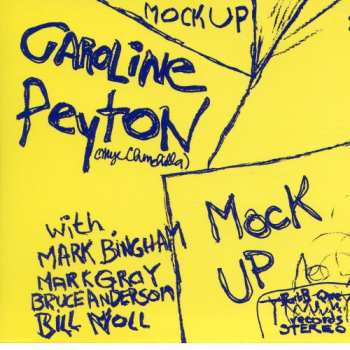 MOCKUP
CAROLINE
PEYTON
with.
MARK BINGHAM
MARK GRAY
BRUCE ANDERSON
BILL NOLL
MOCK
UP
records
STEREO